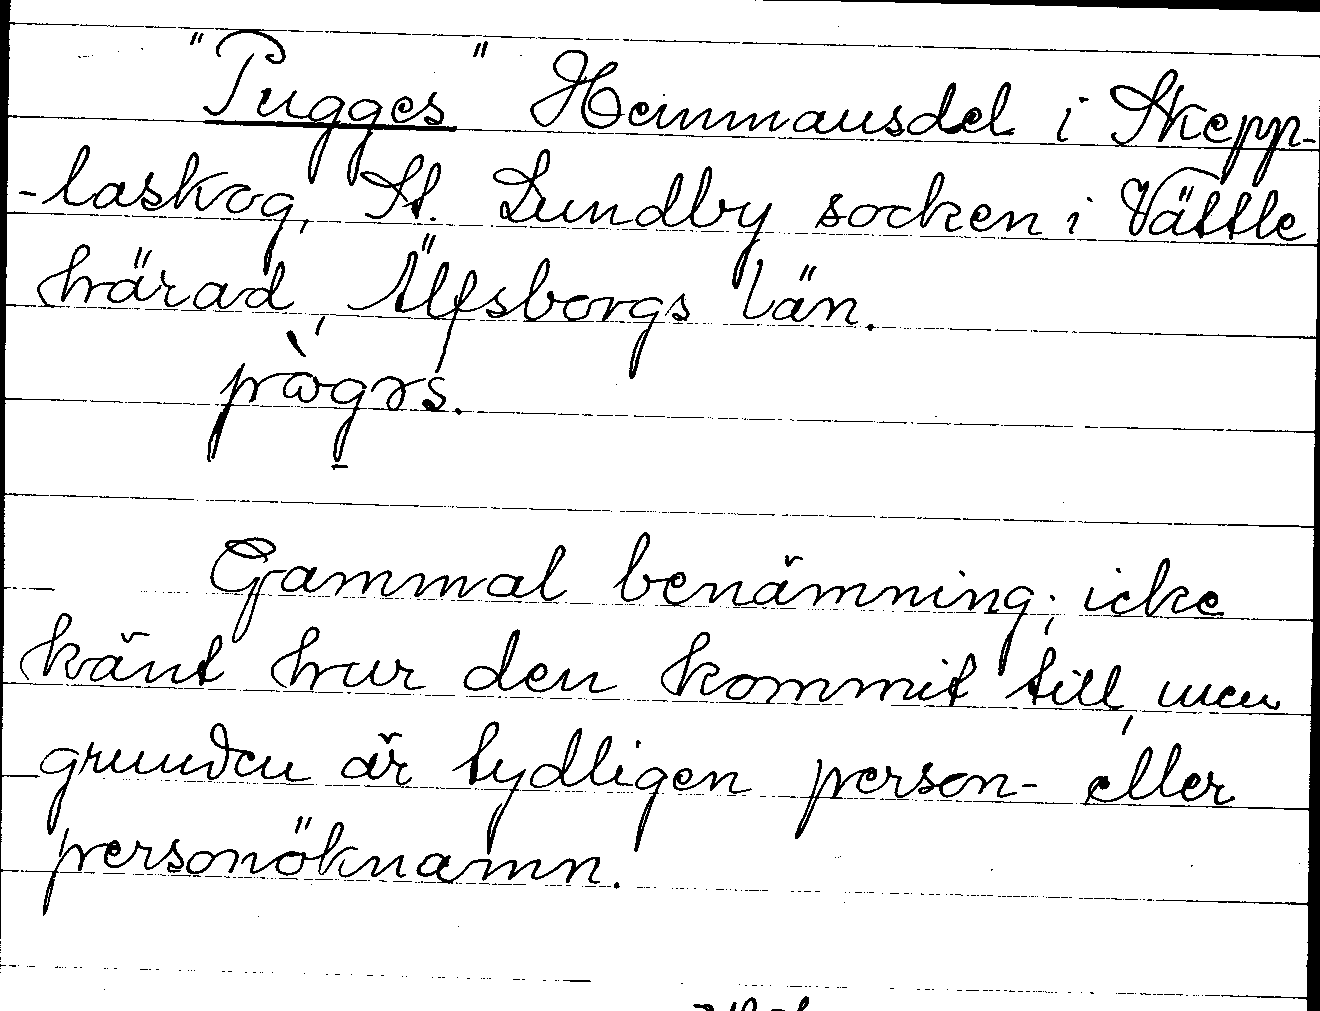 "Pugges" Hemmansdel i Skepp-
-laskog, St. Lundby socken i Vättle
härad, Älfsborgs län.
Gammal benämning; icke
känt hur den kommit till, men
grunden är tydligen person- eller
personöknamn.